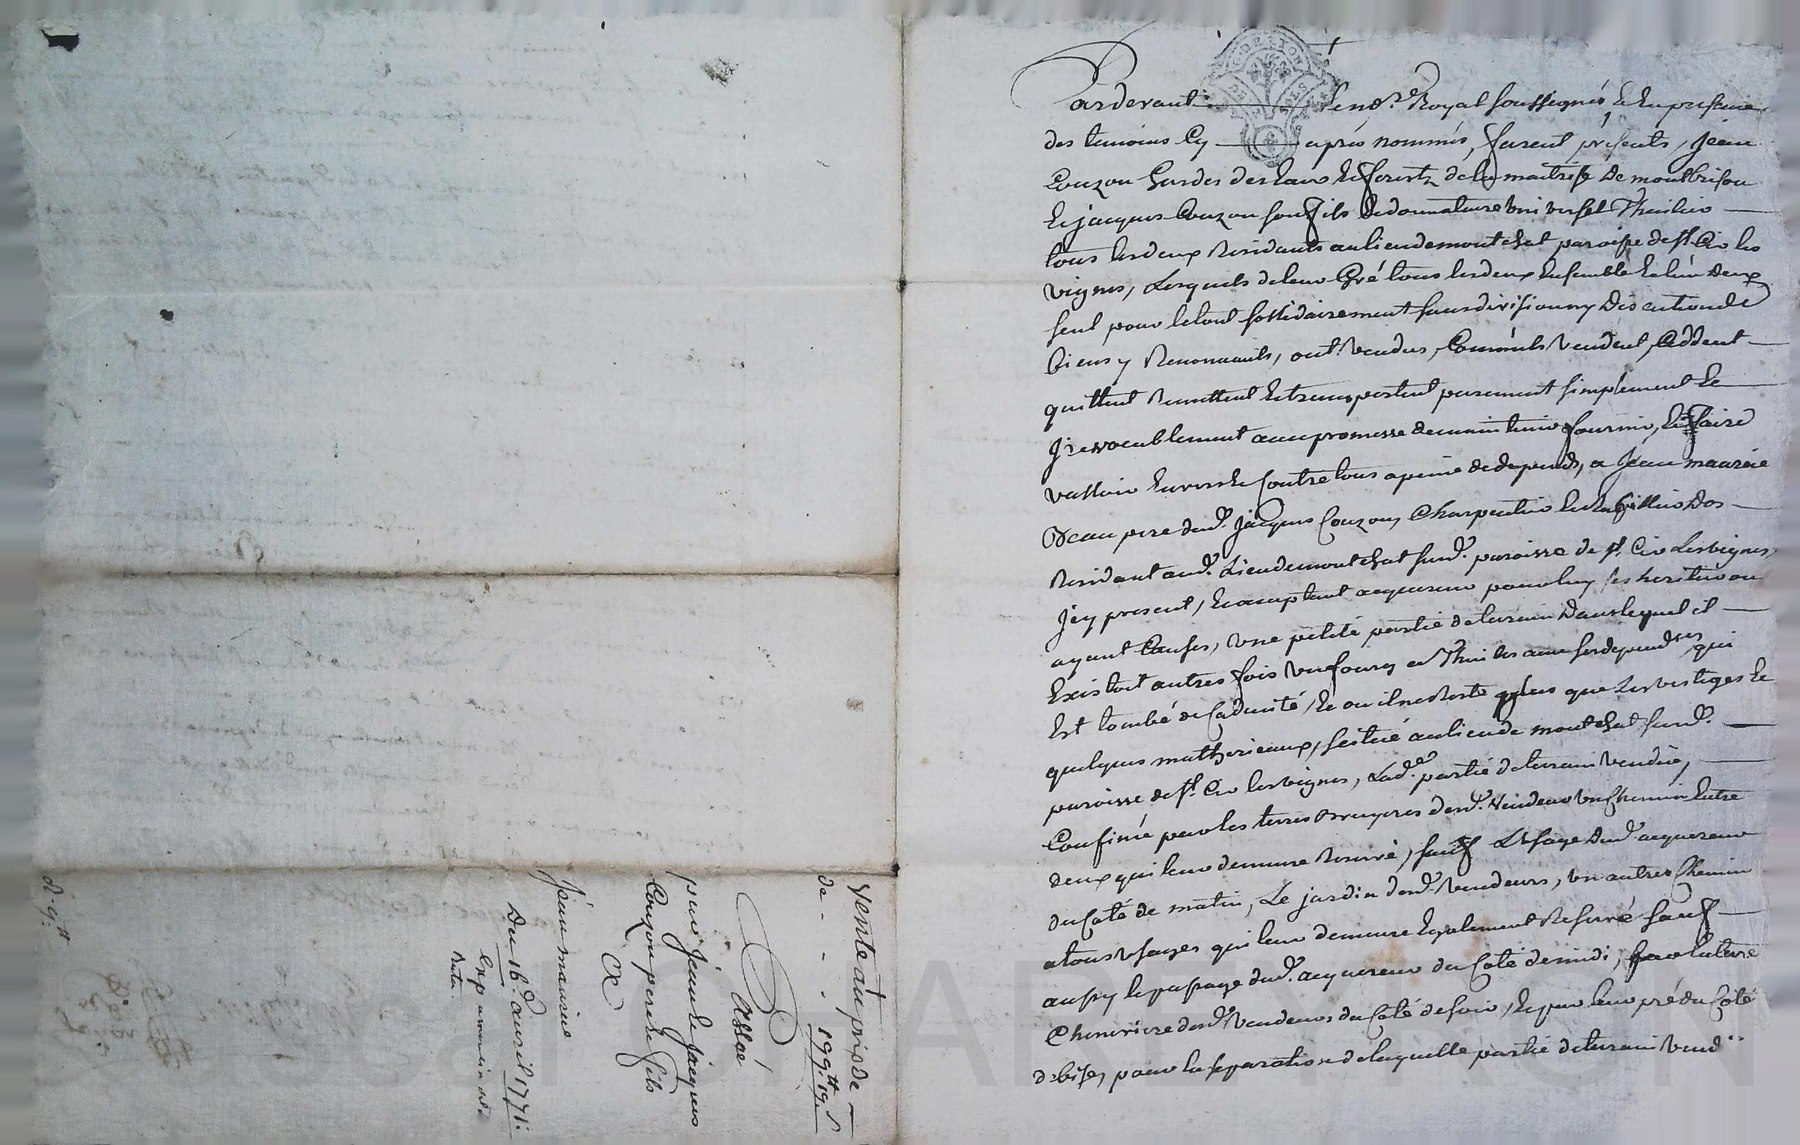 Pardevant le no.re Royal soussigné Et En presence
des temoins Cy après nommés, furent présents, Jean
Couzon Gardes des Eaux Et forests de la maitrise de montbrison
Et jacques Couzon son fils Et donnataire universel Thuilier
tous les deux Residants au lieu de montchat paroisse de st. Cir les
vignes, Lesquels de leur Gré tous les deux Ensemble Et l'un d'eux
seul pour le tout sollidairement sans division ny discution de
biens y Renonçants, ont vendus, Comme ils vendent, Cèddent
quittent Remettent Et transportent purement simplement Et
Jrrevocablement avec promesse de maintenir fournir, Et faire
valloir Envers Et Contre tous a peine de depends, a Jean maurie
Beau pere dud. jacques Couzon Charpentier
Residant aud. Lieu de montchat susd. paroisse de st. Cir Les vignes,
Jcy present, Et acceptant acquereur pour luy ses heritiers ou
ayant Causes, une petite partie de terrain dans lequel il
Existoit autres fois un fourg a Thuiles avec ses dépend.ces qui
Est tombé de Caducité, Et ou il ne Reste plus que Les vestiges Et
quelques mathérieaux, scitué au lieu de montchat susd.
paroisse de st. Cir les vignes, Lad.e partie de terrain vendüe,
Confinée par les terres bruyeres desd. Vendeurs un Chemin Entre
deux qui leur demeure Reservé, sauf L'usage dud. acquereur
du Coté de matin, Le jardin desd. Vendeurs, un autre Chemin
a tous usages qui leur demeure Egalement Reservé sauf
aussy le passage dud. acquereur du Coté de midi, par la terre
Cheneviere desd. Vendeurs du Coté de soir, Et par leur pré du Coté
de bise, pour la separation de laquelle partie de terrain vend..
Vente au prix de
de - - - 199.tt 19.s
Passée
par Jean Et Jacques
Couzon pere Et fils
a
Jean maurie
Du 16.e avril 1771.